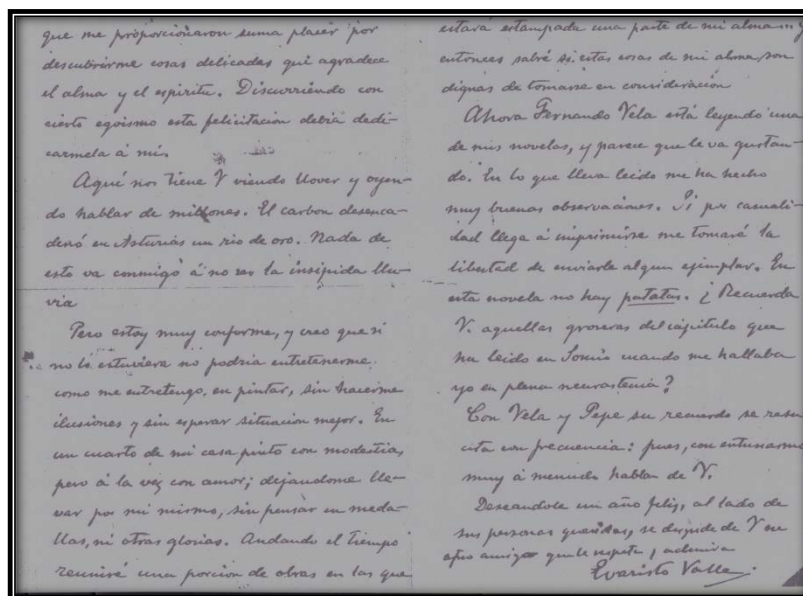 que me proporcionaron suma placer por
descubrirme cosas delicadas que agradece
el alma y el espiritu. Discurriendo con
cierto egoismo esta felicitacion debia dedi-
carmela á mi.
Aqui nos tiene V viendo llover y oyen-
do hablar de millones. El carbon desenca-
denó en Asturias un rio de oro. Nada de
esto va conmigo á no ser la insipida llu-
via
Pero estoy muy conforme, y creo que si
no lo estuviera no podria entretenerme
como me entretengo, en pintar, sin hacerme
ilusiones y sin esperar situacion mejor. En
un cuarto de mi casa pinto con modestia,
pero á la vez con amor; dejandome lle-
var por mi mismo, sin pensar en meda-
llas, ni otras glorias. Andando el tiempo
reuniré una porcion de obras en las que
estará estampada una parte de mi alma y
entonces sabré si estas cosas de mi alma son
dignas de tomarse en consideración
Ahora Fernando Vela está leyendo una
de mis novelas, y parece que le va gustan-
do. En lo que lleva leido me ha hecho
muy buenas observaciones. Si por casuali-
dad llega á imprimirse me tomaré la
libertad de enviarle algun ejemplar. En
esta novela no hay patatas. ¿Recuerda
V. aquellas groseras del capitulo que
ha leido en Somió cuando me hallaba
yo en plena neurastenia?
Con Vela y Pepe su recuerdo se resu
cita con frecuencia: pues, con entusiasmo
muy á menudo hablan de V.
Deseandole un año feliz, al lado de
sus personas queridas, se despide de V su
afmo amigo que le respeta y admira
Evaristo Valle.